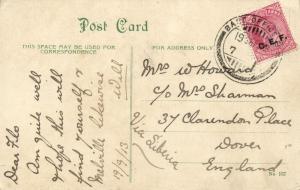 Post Card
THIS SPACE MAY BE USED FOR
CORRESPONDENCE
FOR ADDRESS ONLY
C.E.F.
Dear Flo
Am quite well
& hope this will
find yourself &
Melville likewise
Will
19/9/13
Via Siberia
Mrs W Howard
c/o Mrs Sharman
37 Clarendon Place
Dover
England
No 102